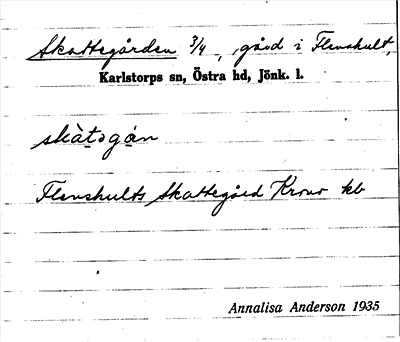 Skattegården 3/4, gård i Flenshult,
Karlstorps sn, Östra hd, Jönk. l.
skàtəgán
Flenshults Skattegård Krono kb
Annalisa Anderson 1935